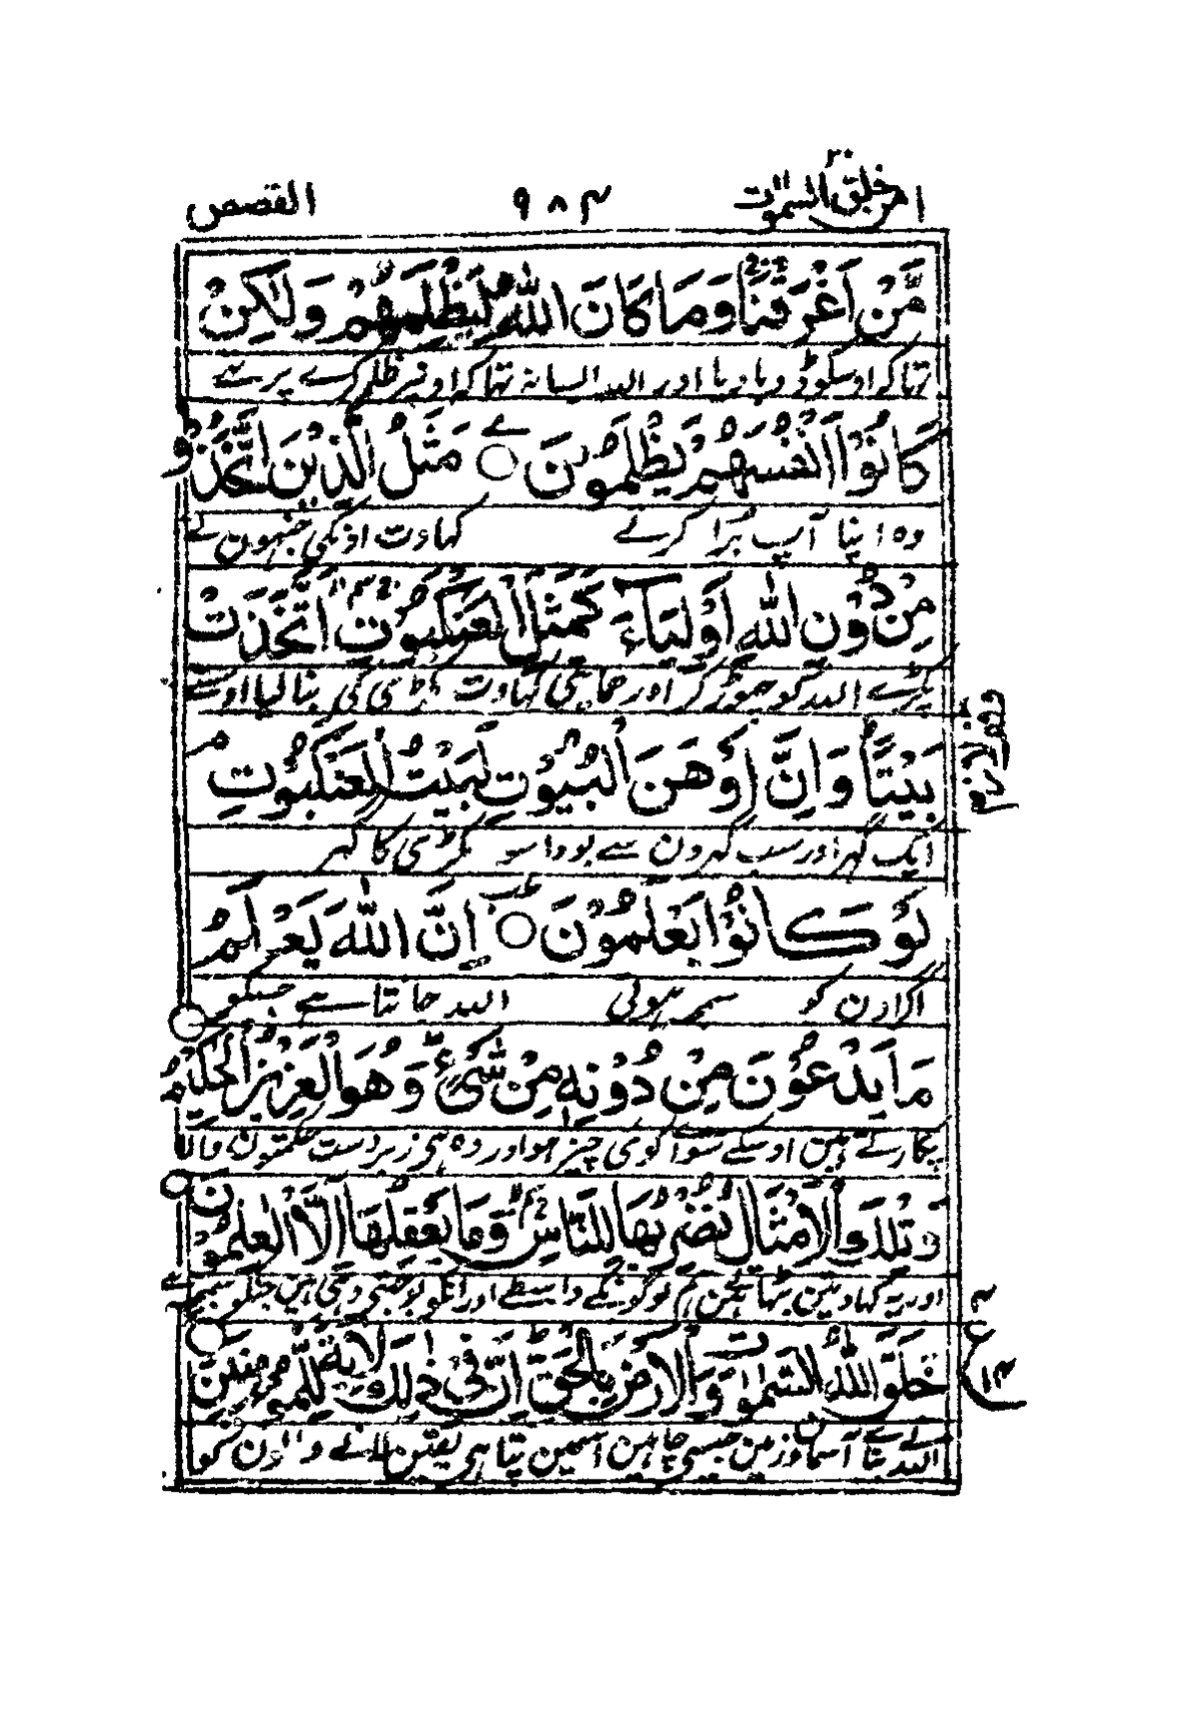 امن خلق السموت ۲۰ ۹۸۴ القصص
مَّنْ اَغْرَقْنَا وَمَا كَانَ اللّٰهُ لِيَظْلِمَهُمْ وَلٰكِنْ
تہا کہ اوسکو ڈوبا دیا اور اللہ ایسا نہ تہا کہ اونپر ظلم کرے پر تہے
كَانُوْٓا اَنْفُسَهُمْ يَظْلِمُوْنَ ○ مَثَلُ الَّذِيْنَ اتَّخَذُوْا
وہ اپنا آپ برا کرتے کہاوت اونکی جنہون نے
مِنْ دُوْنِ اللّٰهِ اَوْلِيَآءَ كَمَثَلِ الْعَنْكَبُوْتِ اِتَّخَذَتْ
پکڑے اللہ کو چہوڑ کر اور حمایتی کہاوت مکڑی کی بنا لیا اوسنے
بَيْتًا وَاِنَّ اَوْهَنَ الْبُيُوْتِ لَبَيْتُ الْعَنْكَبُوْتِ
ایک گہر اور سب گہرون سے بودا سو مکڑی کا گہر
لَوْ كَانُوْا يَعْلَمُوْنَ ○ اِنَّ اللّٰهَ يَعْلَمُ
اگر اون کو سمجہ ہوتی اللہ جانتا ہے جسکو
مَا يَدْعُوْنَ مِنْ دُوْنِهٖ مِنْ شَيْءٍ وَهُوَ الْعَزِيْزُ الْحَكِيْمُ ○
پکارتے ہین اوسکے سوا کوئی چیز ہو اور وہ ہی زبردست حکمتون والا
وَتِلْكَ الْاَمْثَالُ نَضْرِبُهَا لِلنَّاسِ وَمَا يَعْقِلُهَا اِلَّا الْعٰلِمُوْنَ ○
اور یہ کہاوتین بٹہاتے ہین ہم لوگونکے واسطے اور انکو بوجہتے وہی ہین جنکو سمجہ ہے
خَلَقَ اللّٰهُ السَّمٰوٰتِ وَالْاَرْضَ بِالْحَقِّ اِنَّ فِيْ ذٰلِكَ لَاٰيَةً لِّلْمُؤْمِنِيْنَ ○
ع ۴ ۱۴
اللہ نے بنائے آسمان و زمین جیسے چاہین اسمین پتا ہی یقین لانے والون کو